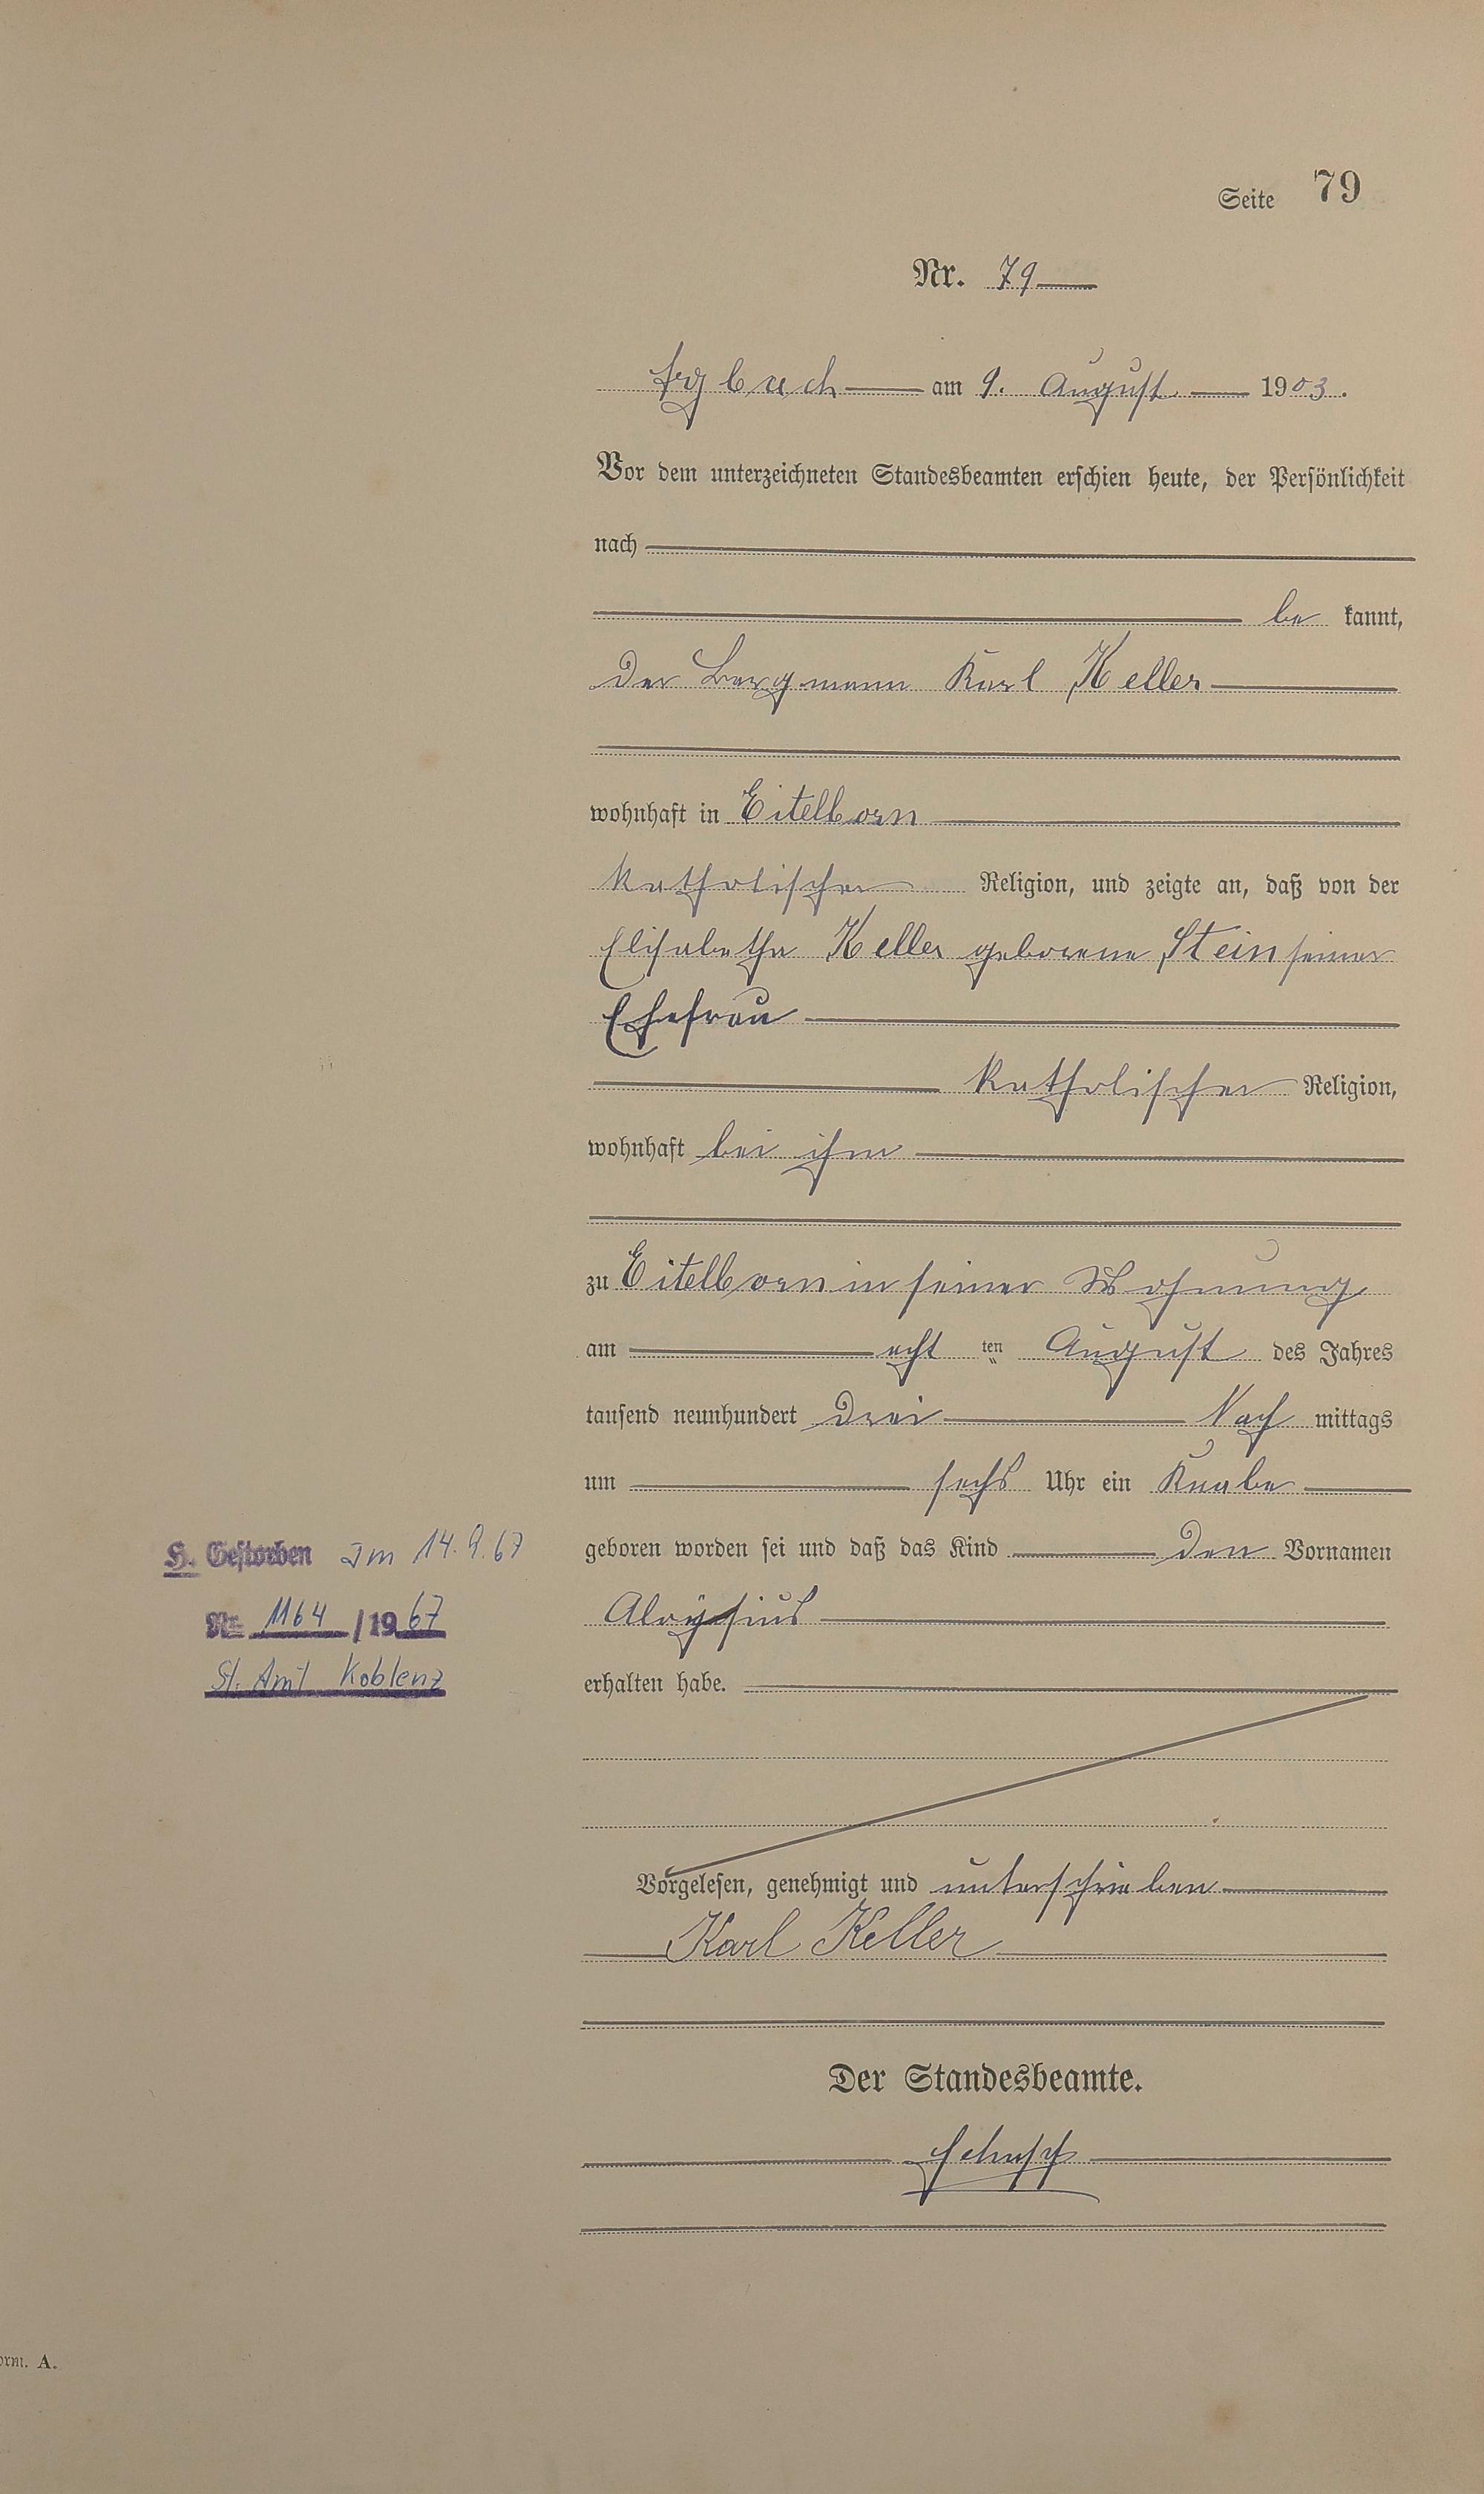 Seite 79
Nr. 79
Arzbach am 9. August 1903.
Vor dem unterzeichneten Standesbeamten erschien heute, der Persönlichkeit
nach
be kannt,
der Bergmann Karl Keller
wohnhaft in Eitelborn
katholischer Religion, und zeigte an, daß von der
Elisabetha Keller geborene Stein seiner
Ehefrau
katholischer Religion,
wohnhaft bei ihm
zu Eitelborn in seiner Wohnung
am acht ten August des Jahres
tausend neunhundert drei Nach mittags
um sechs Uhr ein Knabe
geboren worden sei und daß das Kind den Vornamen
Aloÿsius
erhalten habe.
Vorgelesen, genehmigt und unterschrieben
Karl Keller
Der Standesbeamte.
H. Gestorben am 14.9.67
Nr. 1164 /1967
St. Amt Koblenz
orm. A.